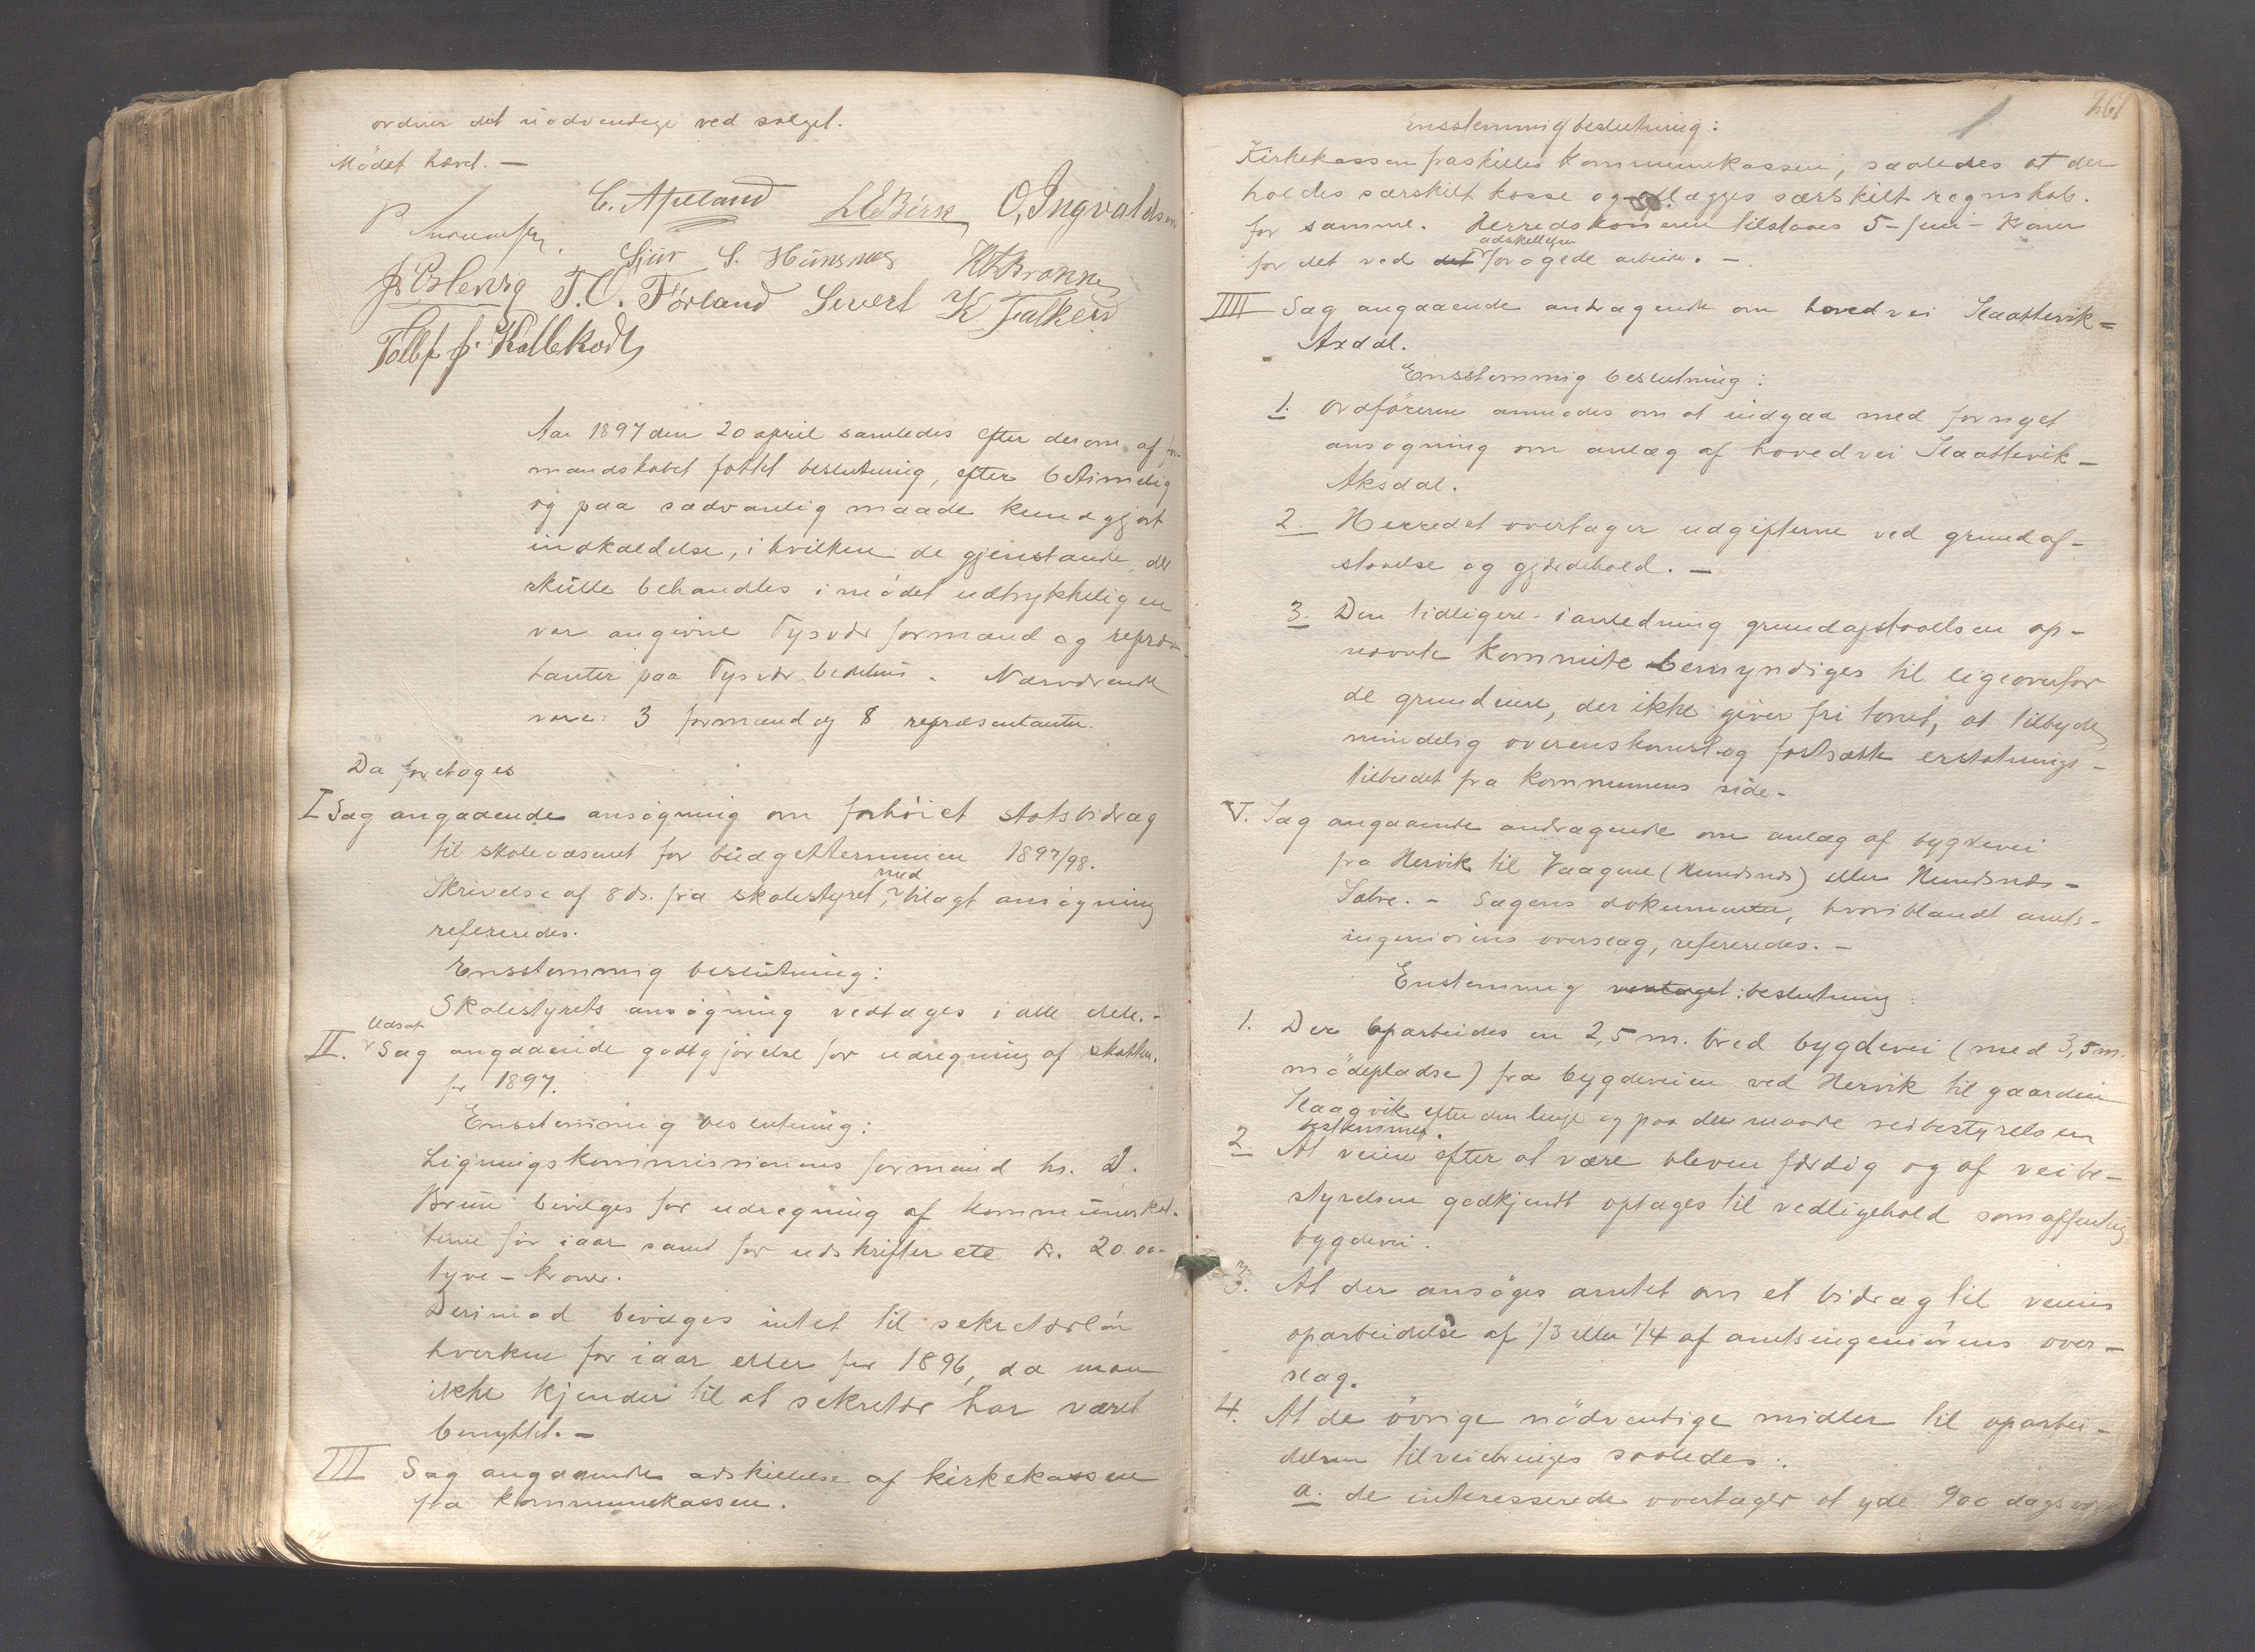 ordner det nødvendige ved salget.
Mödet hævet. —
C. Apeland L E Birk O, Ingvaldsen
P.
Sjur S. Hünsnæs
T. O. Førland Sivert K Falkeid
Aar 1897 den 20 april samledes efter derom af for-
mandskabet fattet beslutning, efter betimelig
og paa sædvanlig maade kundgjort
indkaldelse, i hvilken de gjenstande, der
skulle behandles i mödet udtrykkeligen
var angivne Tysvær formænd og repræsen-
tanter paa Tysvær bedehus. Nærværende
vare: 3 formænd og 8 repræsentanter.
Da foretoges
I Sag angaaende ansögning om forhöiet statsbidrag
til skolevæsenet for budgetterminen 1897/98.
Skrivelse af 8 ds. fra skolestyret, med tilagt ansögning
refereredes.
Ensstemmig beslutning:
Skolestyrets ansögning vedtages i alle dele. -
II. Udsat Sag angaaende godtgjörelse for udregning af skatten
for 1897.
Ensstemmig beslutning:
Ligningskommissionens formand hr. D.
Brun bevilges for udregning af kommuneskat-
terne for iaar samt for udskrifter etc kr. 20.00-
tyve - kroner.
Derimod bevilges intet til sekretærlön
hverken for iaar eller for 1896, da man
ikke kjender til at sekretær har været
benyttet. —
III Sag angaaende adskillelse af kirkekassen
fra kommunekassen.
267
Ensstemmig beslutning:
Kirkekassen fraskilles kommunekassen, saaledes at der
holdes særskilt kasse og aflægges særskilt regnskab.
for samme. Herredskasseren tilstaaes 5 - fem - kroner
for det ved det adskillelsen forøgede arbeide. —
IIII Sag angaaende andragende om hovedvei Slaattevik=
Axdal.
Ensstemmig beslutning:
1. Ordföreren anmodes om at indgaa med fornyet
ansøgning om anlæg af hovedvei Slaattevik -
Aksdal.
2. Herredet overtager udgifterne ved grundaf-
staaelse og gjærdehold. —
3. Den tidligere i anledning grundafstaaelsen op-
nævnte kommite bemyndiges til ligeoverfor
de grundeiere, der ikke giver fri tomt, at tilbyde
mindelig overenskomst og fastsætte erstatnings-
tilbudet fra kommunens side -
V. Sag angaaende andragende om anlæg af bygdevei
fra Hervik til Vaagene (Hundsnæs) eller Hundsnæs -
Satre. - Sagens dokumenter, hvoriblandt amts-
ingeniörens overslag, refereredes. —
Enstemmig vedtaget: beslutning:
1. Der oparbeides en 2,5 m. bred bygdevei (med 3,5 m.
mödepladse) fra bygdeveien ved Hervik til gaarden
Slaagvik efter den linje og paa den maade veibestyrelsen
bestemmer.
2. At veien efter at være bleven færdig og af veibe-
styrelsen godkjendt optages til vedligehold som offentlig
bygdevei.
3. At der ansöges amtet om et bidrag til veiens
oparbeidelse af 1/3 eller 1/4 af amtsingeniörens over-
slag.
4. At de övrige nödvendige midler til oparbei-
delsen tilveiebringes saaledes:
a. de interesserede overtager at yde 900 dagsv